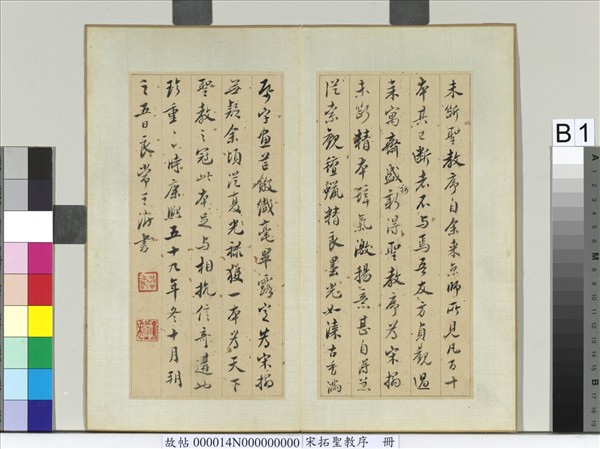 未斷聖教序自余來京師所見凡百十
本其已斷者不与焉吾友方貞觀過
来寓齋盛称新淂聖教序為宋搨
未斷精本騂氣激揚意甚自得急
從索觀氊蠟精良墨光如漆古香滿
紙字畫芒鍛韱毫畢露定為宋搨
無疑余頃從夏光祿獲一本為天下
聖教之冠此本足与相抗信奇遘也
珍重〻時康熙五十九年冬十月朔
之五日良常王澍書
B 1
故帖 000014N000000000 宋拓聖教序 冊